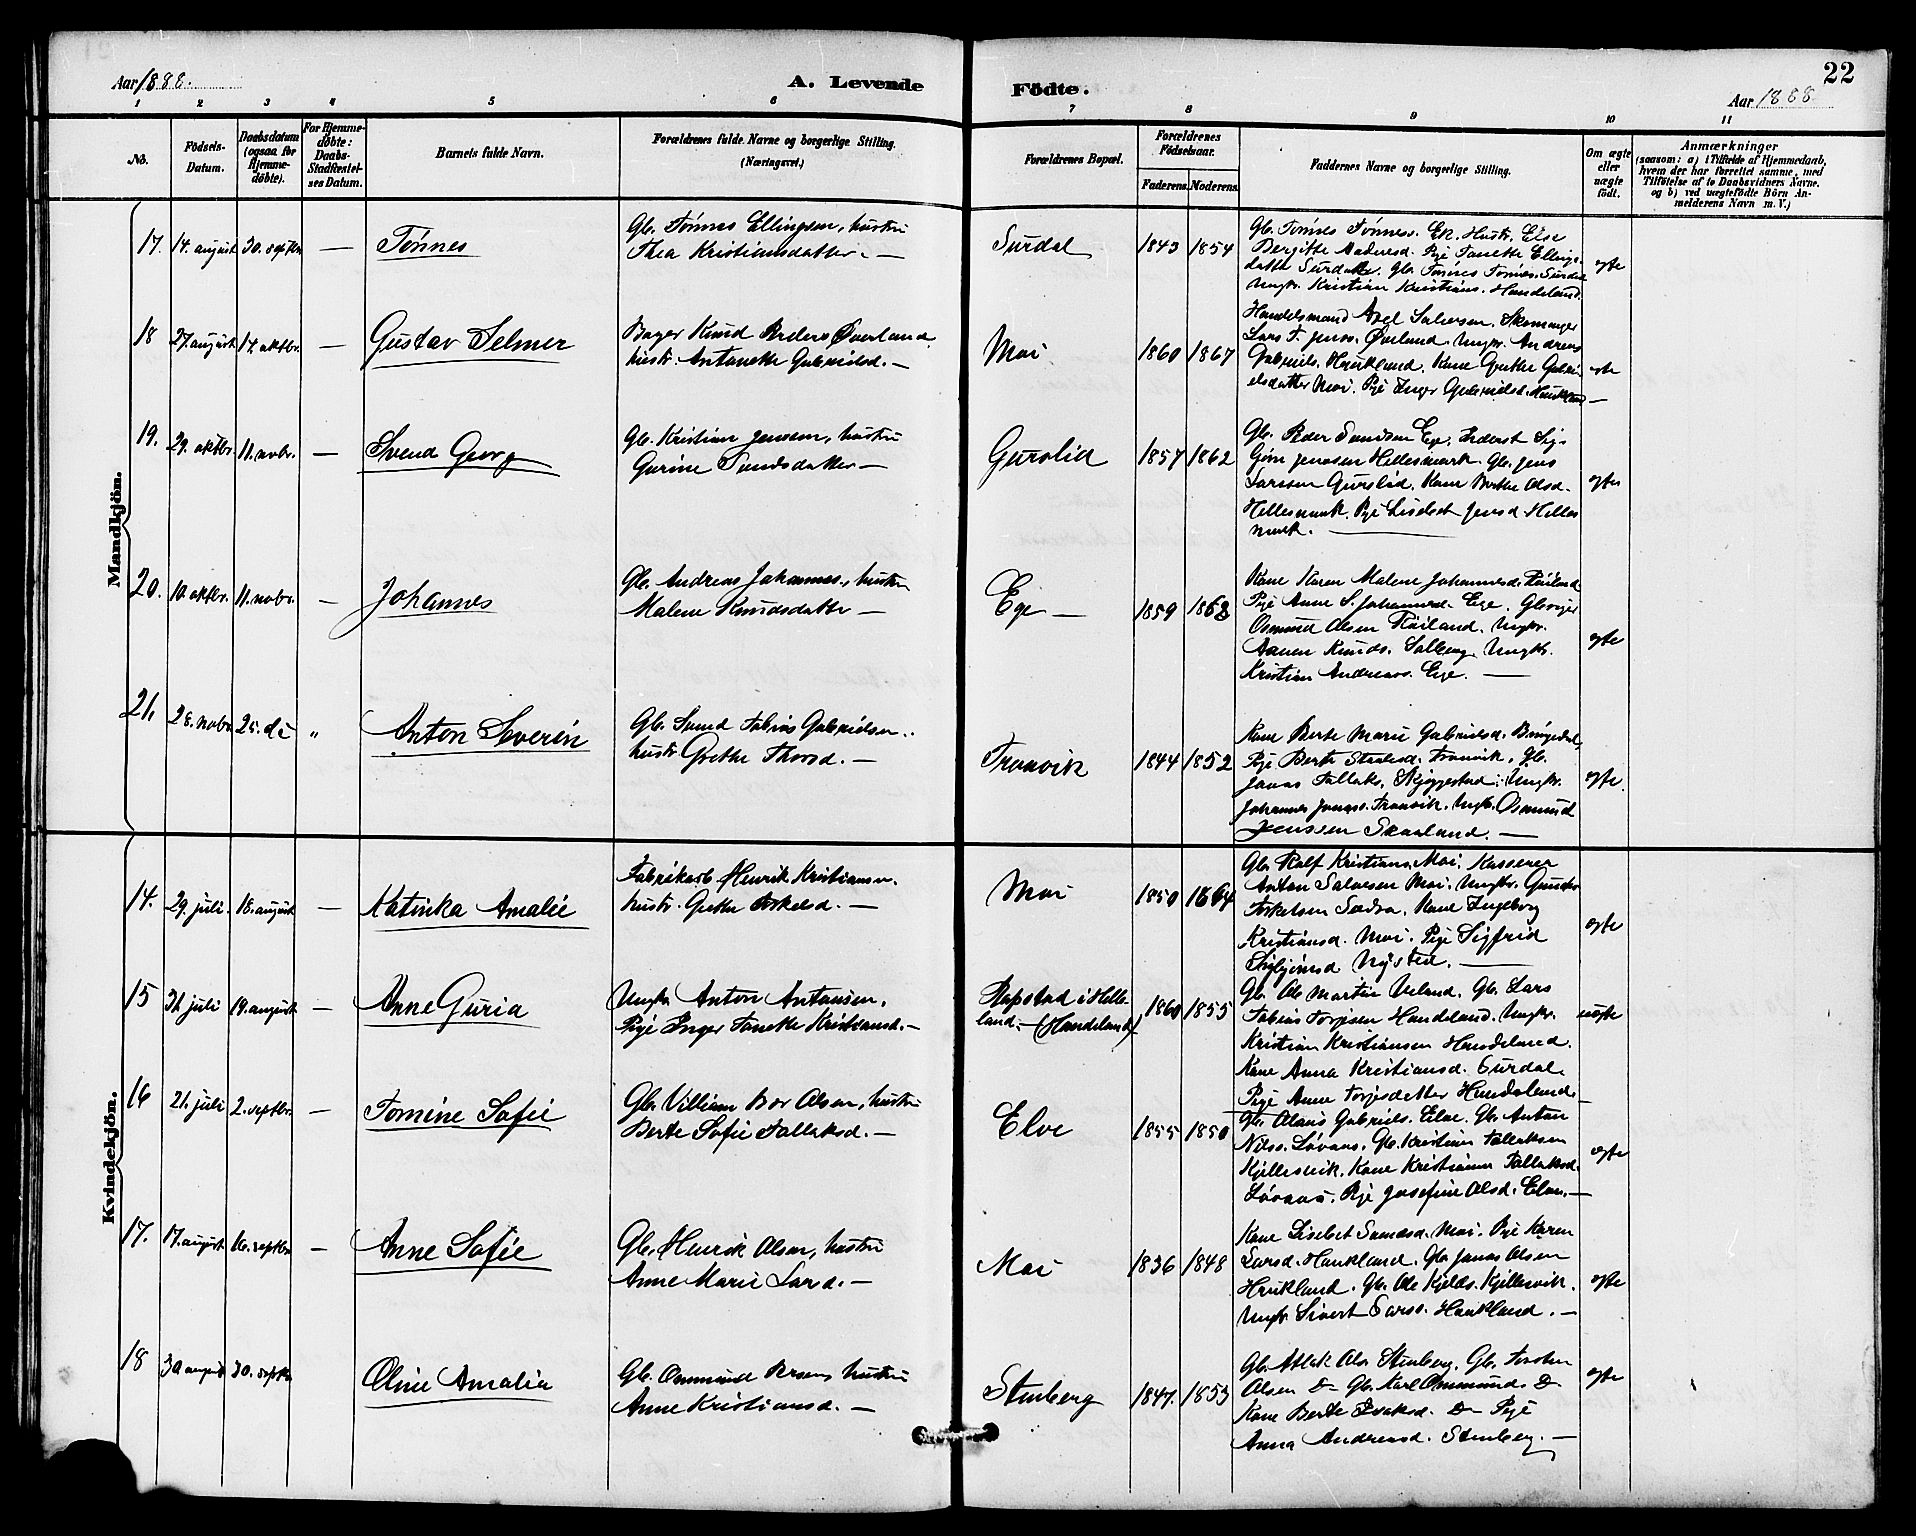 22
Aar 1888.
A. Levende
Födte.
Aar 1888
1 2 3 4 5 6 7 8 9 10 11
No.
Födsels-Datum.
Daabsdatum (ogsaa för Hjemme-döbte).
For Hjemme-döbte: Daabs-Stadfæstel-ses Datum.
Barnets fulde Navn.
Forældrenes fulde Navne og borgerlige Stilling.
(Næringsvei.)
Forældrenes Bopæl.
Forældrenes Födselsaar.
Faderens. Moderens.
Faddernes Navne og borgerlige Stilling.
Om ægte eller uægte födt.
Anmærkninger
(saasom: a) i Tilfælde af Hjemmedaab,
hvem der har forrettet samme, med
Tilföielse af to Daabsvidners Navne.
og b) ved uægtefödte Börn An-
melderens Navn m. V.)
Mandkjön.
17. 14. august 30. septbr. — Tønnes
Gb. Tønnes Ellingsen, hustru
Thea Kristiansdatter. —
Surdal 1843 1854
Gb. Tønnes Tønness. Ek. Hustr. Else
Bergitte Madsesd. Pige Tanette Ellings-
datter Surdal. Gb. Tønnes Tønnes. Surdal
Ungkr. Kristian Kristians. Handeland.
egte
18 27. august 14. oktbr. — Gustav Selmer
Bager Knud Anders. Øverland,
hustr. Antonette Gabrielsd. —
Moi 1860 1867
Handelsmand Axel Salvesen. Skomager
Lars T. Jenss. Øverland, Ungkr. Andreas
Gabriels. Haukland. Kone Gjertke Gabri-
elsdatter Moi. Pige Inger Gabrielsd. Haukland —
egte
19. 29. oktbr. 11. nobr. — Svend Georg
Gb. Kristian Jensen, hustru
Gurine Svendsdatter —
Gyrolid 1857 1862
Gb. Peder Svendsen Ege, Inderst Sig-
bjørn Jenssen Hellesmark. Gb. Jens
Larssen Gurolid. Kone Berthe Olsd.
Hellesmark. Pige Liselset Jensd Helles
mark. —
egte
20. 10. oktbr. 11. nobr. — Johannes
Gb. Andreas Johannes., hustru
Malene Knudsdatter —
Ege — 1859 1862
Kone Karen Malene Johannesd. Røiland
Pige Anne S. Johannesd. Ege. Gbruger
Osmund Olsen Røiland. Ungkr.
Aanen Knuds. Solberg. Ungkr.
Kristian Andreass. Ege. —
egte
21. 28. nobr. 25. de " Anton Severin
Gb. Svend Tobias Gabrielsen.
hustr. Grethe Thorsd. —
Tronvik 1844 1852
Kone Berte Marie Gabrielsd. Bringedal,
Pige Berte Staalesd. Tronvik, Gb.
Jonas Tallaks. Skjeggestad. Ungkr.
Johannes Jonass. Tronvik. Ungkr. Osmund
Jenssen Skaaland. —
egte.
Kvindekjön.
14. 29. juli. 18. august — Katinka Amalie
Fabrikarb. Henrik Kristiansen.
hustr. Grethe Torkelsd. —
Moi 1850 1864
Gb. Rolf Kristians. Moi. Kasserer
Anton Salvesen Moi. Ungkr. Gunder
Torkelsen Sædra. Kone Ingeborg
Kristiansd. Moi. Pige Sigfrid
Sigbjørnsd Nysted. —
egte
15 31. juli 19. august — Anne Guria
Ungkr. Anton Antonsen,
Pige Inger Tanette Kristiansd. —
Rapstad i Helle-
land. — (Handeland) 1860 1855
Gb. Ole Martin Veland. Gb. Lars
Tobias Torjesen Handeland. Ungkr.
Kristian Kristiansen Handeland.
Kone Anna Kristiansd. Surdal.
Pige Anne Torjesdatter Handeland. —
uegte
16 21. juli 2. septbr. — Tomine Sofie
Gb. Villiam Bor Olsen, hustru
Berte Sofie Tallaksd. —
Elve 1855 1850
Gb. Olaus Gabriels. Elve. Gb. Anton
Nilss. Løvaas, Gb. Kristian Tallaksen
Kjellesvik, Kone Kristianne Tallaksd.
Løvaas. Pige Josefine Olsd. Elve. —
egte
17. 17. august 16. septbr. — Anne Sofie
Gb. Henrik Olsen, hustru
Anne Marie Larsd. —
Moi 1836 1848
Kone Liselset Svendsd. Moi. Pige Karen
Larsd. Haukland. Gb. Jonas Olsen
Haukland. Gb. Ole Kjelds. Kjellesvik.
Ungkr. Sivert Larss. Haukland. —
egte
18 30 august 30. septbr. Oline Amalia
Gb. Ommund Persen, hustru
Anne Kristiansd. —
Stenberg 1847. 1853
Gb. Atlak Ols. Stenberg. Gb. Torsten
Olsen Do Gb. Karl Ommunds. Do
Kone Berte Isaksd. Do Pige
Anna Andreasd. Stenberg. —
egte